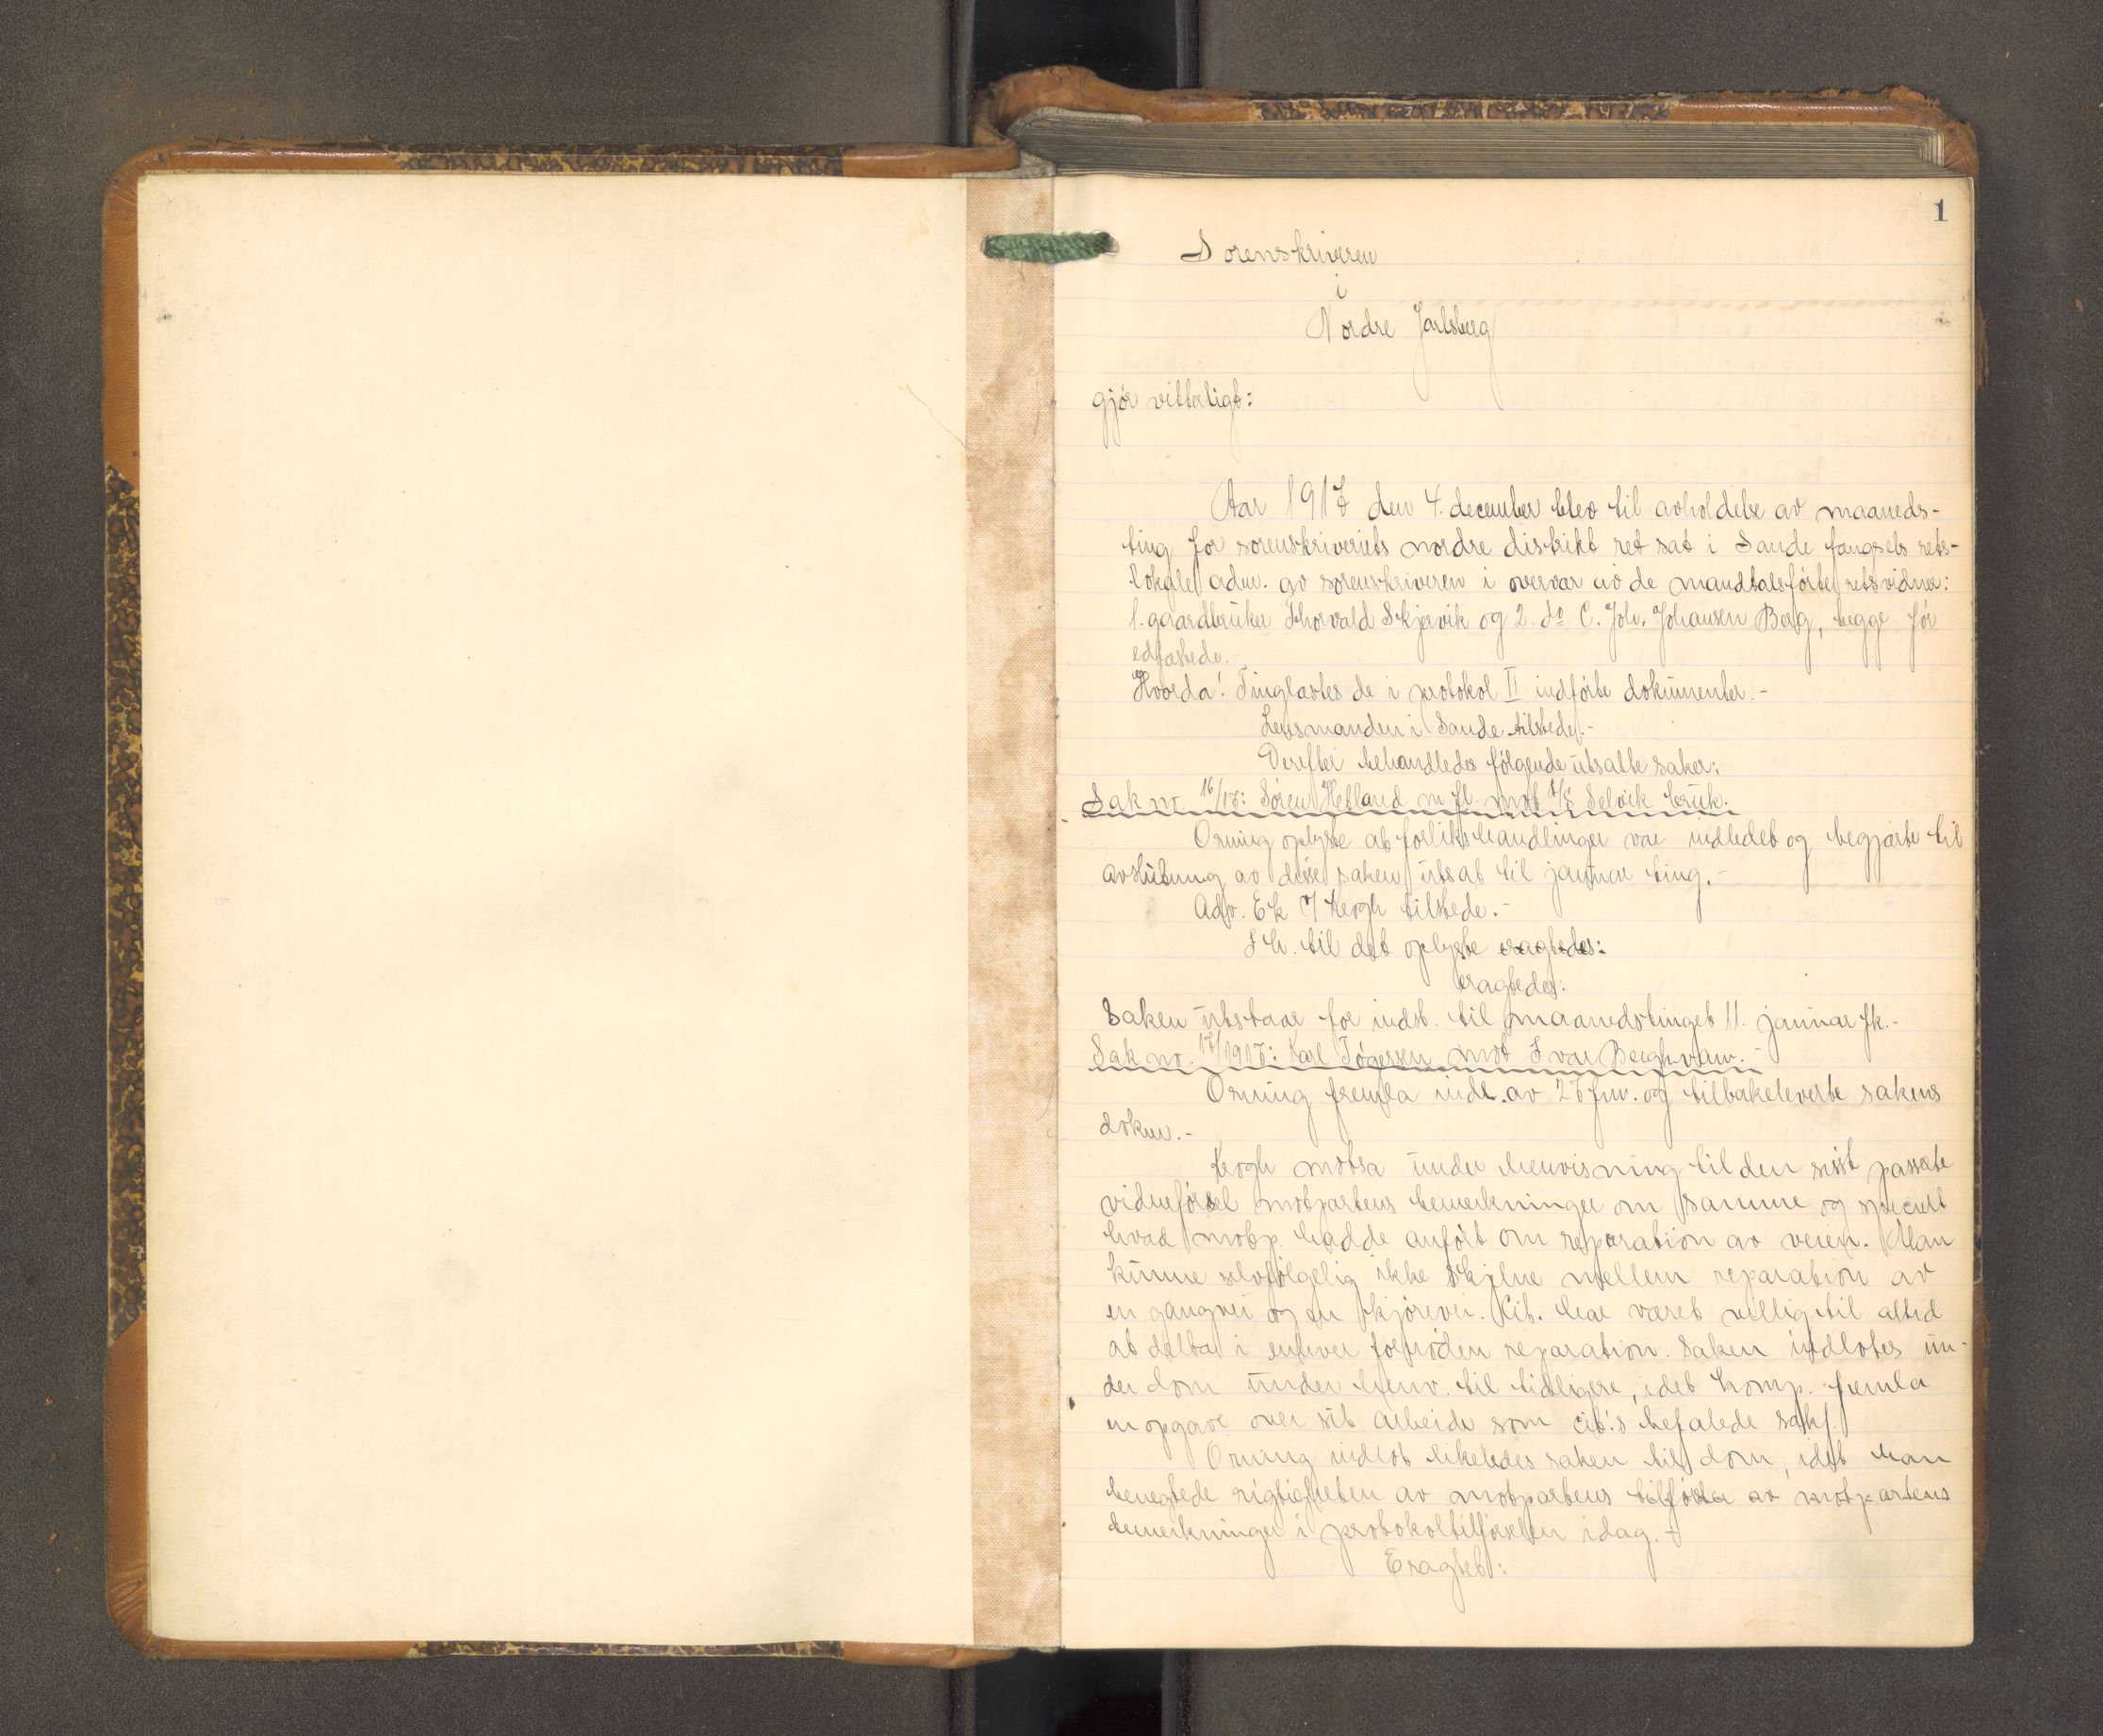 1
Sorenskriveren
i
Nordre Jarlsberg
gjør vitterligt:
Aar 1917 den 4. december blev til avholdelse av maaneds-
ting for sorenskriveriets nordre distrikt ret sat i Sande fængsels rets-
lokale adm. av sorenskriveren i overvær av de mandtalsførte retsvidner:
1. gaardbruker Thorvald Skjervik og 2. do C. Joh. Johansen Berg, begge før
edfæstede.
Hvorda! Tinglæstes de i protokol II indførte dokumenter.-
Lensmanden i Sande tilstede.-
Derefter behandledes følgende utsatte saker:
Sak nr. 16/17: Søren Hetland m. fl. mot A/S Selvik bruk.
Orning oplyste at forlikshandlinger var indledet og begjærte til
avslutning av disse saken utsat til januar ting.-
Adv. Ek v/ Krogh tilstede.-
I h. til det oplyste eragtedes:
eragtedes:
Saken utstaar for indst. til maanedstinget 11. januar fk.-
Sak nr. 17/1917: Karl Tógersen mot Ivar Bergh vaw.-
Orning fremla indl. av 26 fm. og tilbakeleverte sakens
dokum.-
Krogh motsa under henvisning til den sisst passerte
vidneførsel motpartens bemerkninger om samme og specielt
hvad motp. hadde anført om reparation av veien. Man
kunne selvfølgelig ikke skjelne mellem reparation av
en gangvei og en kjørevei. Cit. har været villig til altid
at delta i enhver fornøden reparation. Saken indlotes un-
der dom under henv. til tidligere, idet komp. fremla
en opgave over sit arbeide som cit.'s befalede sakf.
Orning indlot likeledes saken til dom, idet han
benegtede rigtigheten av motpartens tilførsler av motpartens
bemerkninger i protokoltilførselen idag.-
Eragtet: